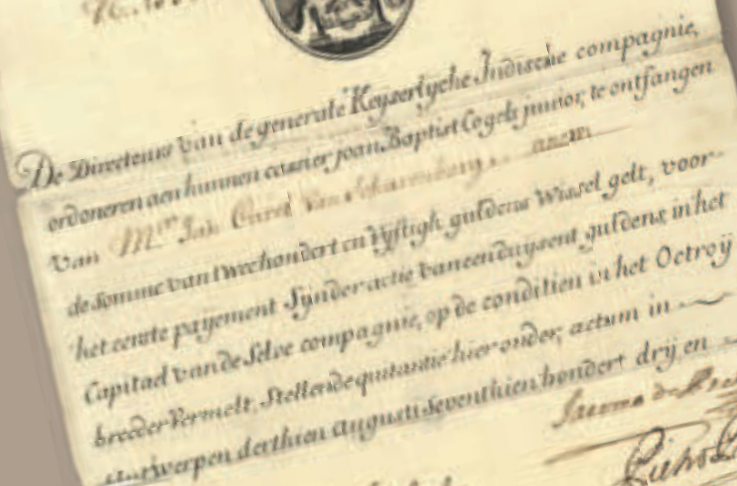 De Directeurs van de generale Keyserlycke Indische compagnie,
ordoneren aen hunnen cassier joan Baptist Cogels junior, te ontfangen
van M.er Jan Carel Van
de somme van tweehondert en vyftigh guldens wissel gelt, voor
het eerste payement Synder actie van een duysent guldens in het
Capitael van de Selve compagnie, op de conditien in het Octroÿ
breeder vermelt, Stellende quitantie hier onder, actum in
antwerpen derthien augusti Seventhien hondert drij en